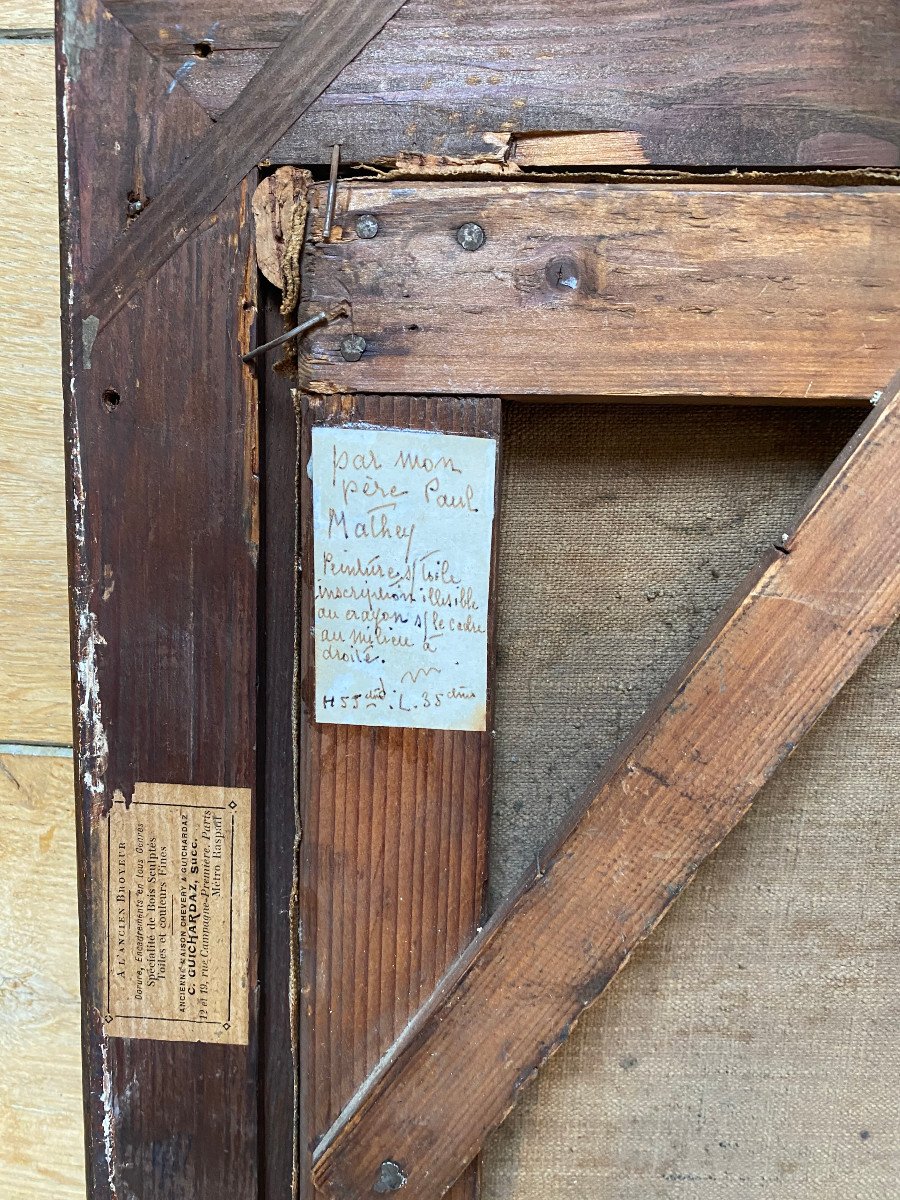 par mon
père Paul
Mathey
Peinture s/ toile
inscription illisible
au crayon s/ le cadre
au milieu à
droite.
H 55 L. 35
A L'ANCIEN BROYEUR
Dorure, Encadrements en tous Genres
Spécialité de Bois Sculptés
Toiles et couleurs Fines
ANCIENNE MAISON CHEVERY & GUICHARDAZ
C. GUICHARDAZ, Succ.
et 19, rue Campagne-Première, Paris
Métro Raspail